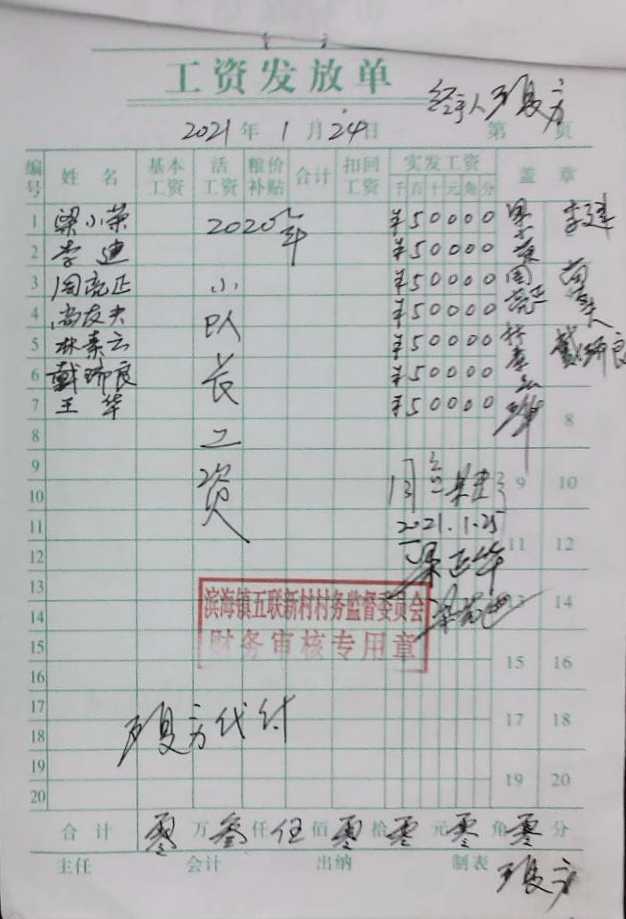 工资发放单
经手人
2021年1月24日 第 页
编号 姓名 基本工资 活工资 粮价补贴 合计 扣回工资 实发工资 盖章
千 百 十 元 角 分
1 梁小荣 2020年 ¥50000
2 李迪 ¥50000 李建
3 周亮正 小 ¥50000
4 尚友夫 队 ¥50000
5 林素云 ¥50000
6 戴珎良 长 ¥50000 戴珎良
7 王华 ¥50000
8 工 8
9 资 9 10
10 同意
11 2021.1.25 11 12
12
13 滨海镇五联新村村务监督委员会 13 14
14 财务审核专用章
15 15 16
16
17 17 18
18 代付
19 19 20
20
合计 零万叁仟伍佰零拾零元零角零分
主任 会计 出纳 制表